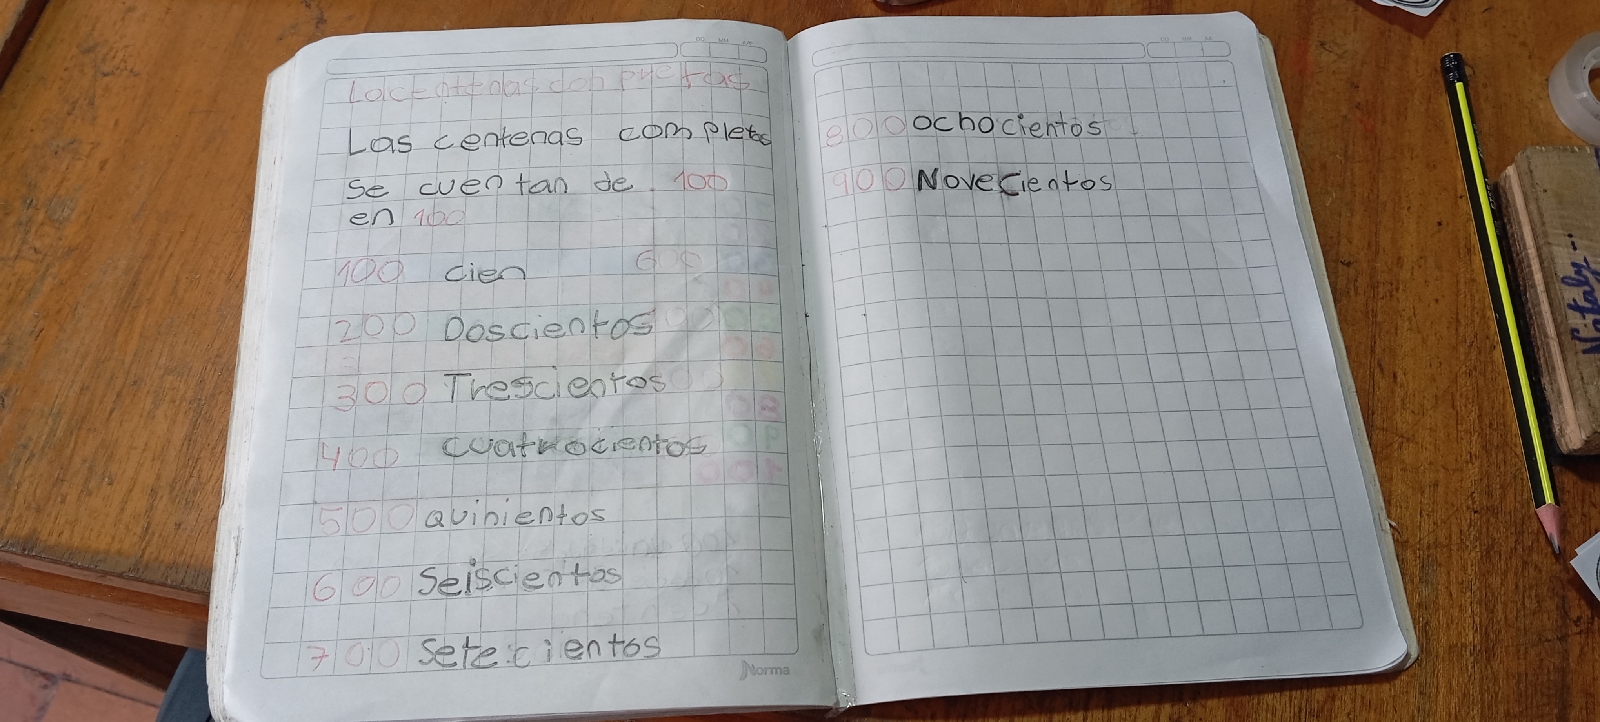 Lacentenas conpretas
Las centenas completas
se cuentan de 100
en 100
100 cien
600
200 Doscientos
300 Trescientos
400 cuatrocientos
500 Quinientos
600 Seiscientos
700 Setecientos
Norma
800 ochocientos
900 Novecientos
Nataly